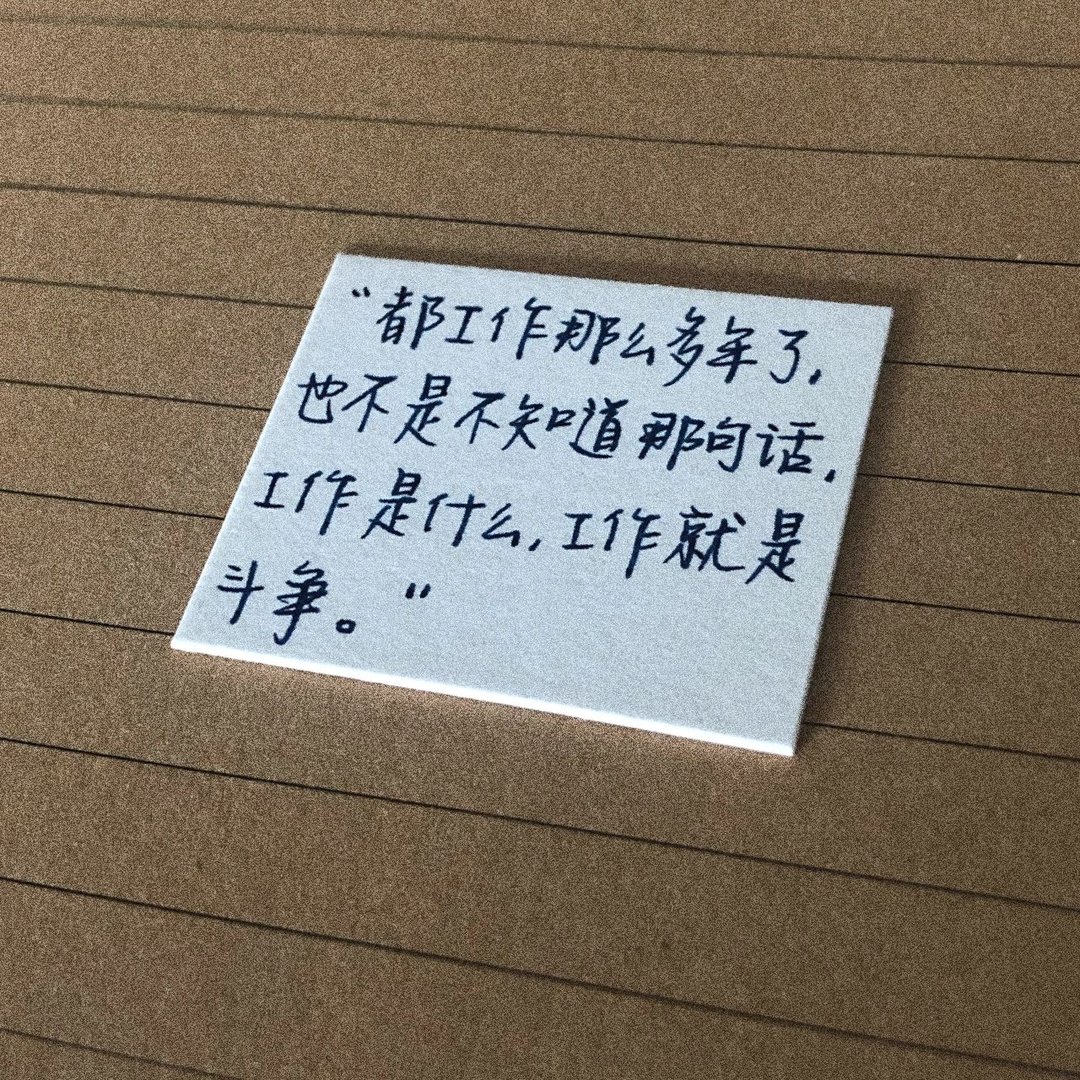 “都工作那么多年了,
也不是不知道那句话,
工作是什么,工作就是
斗争。”